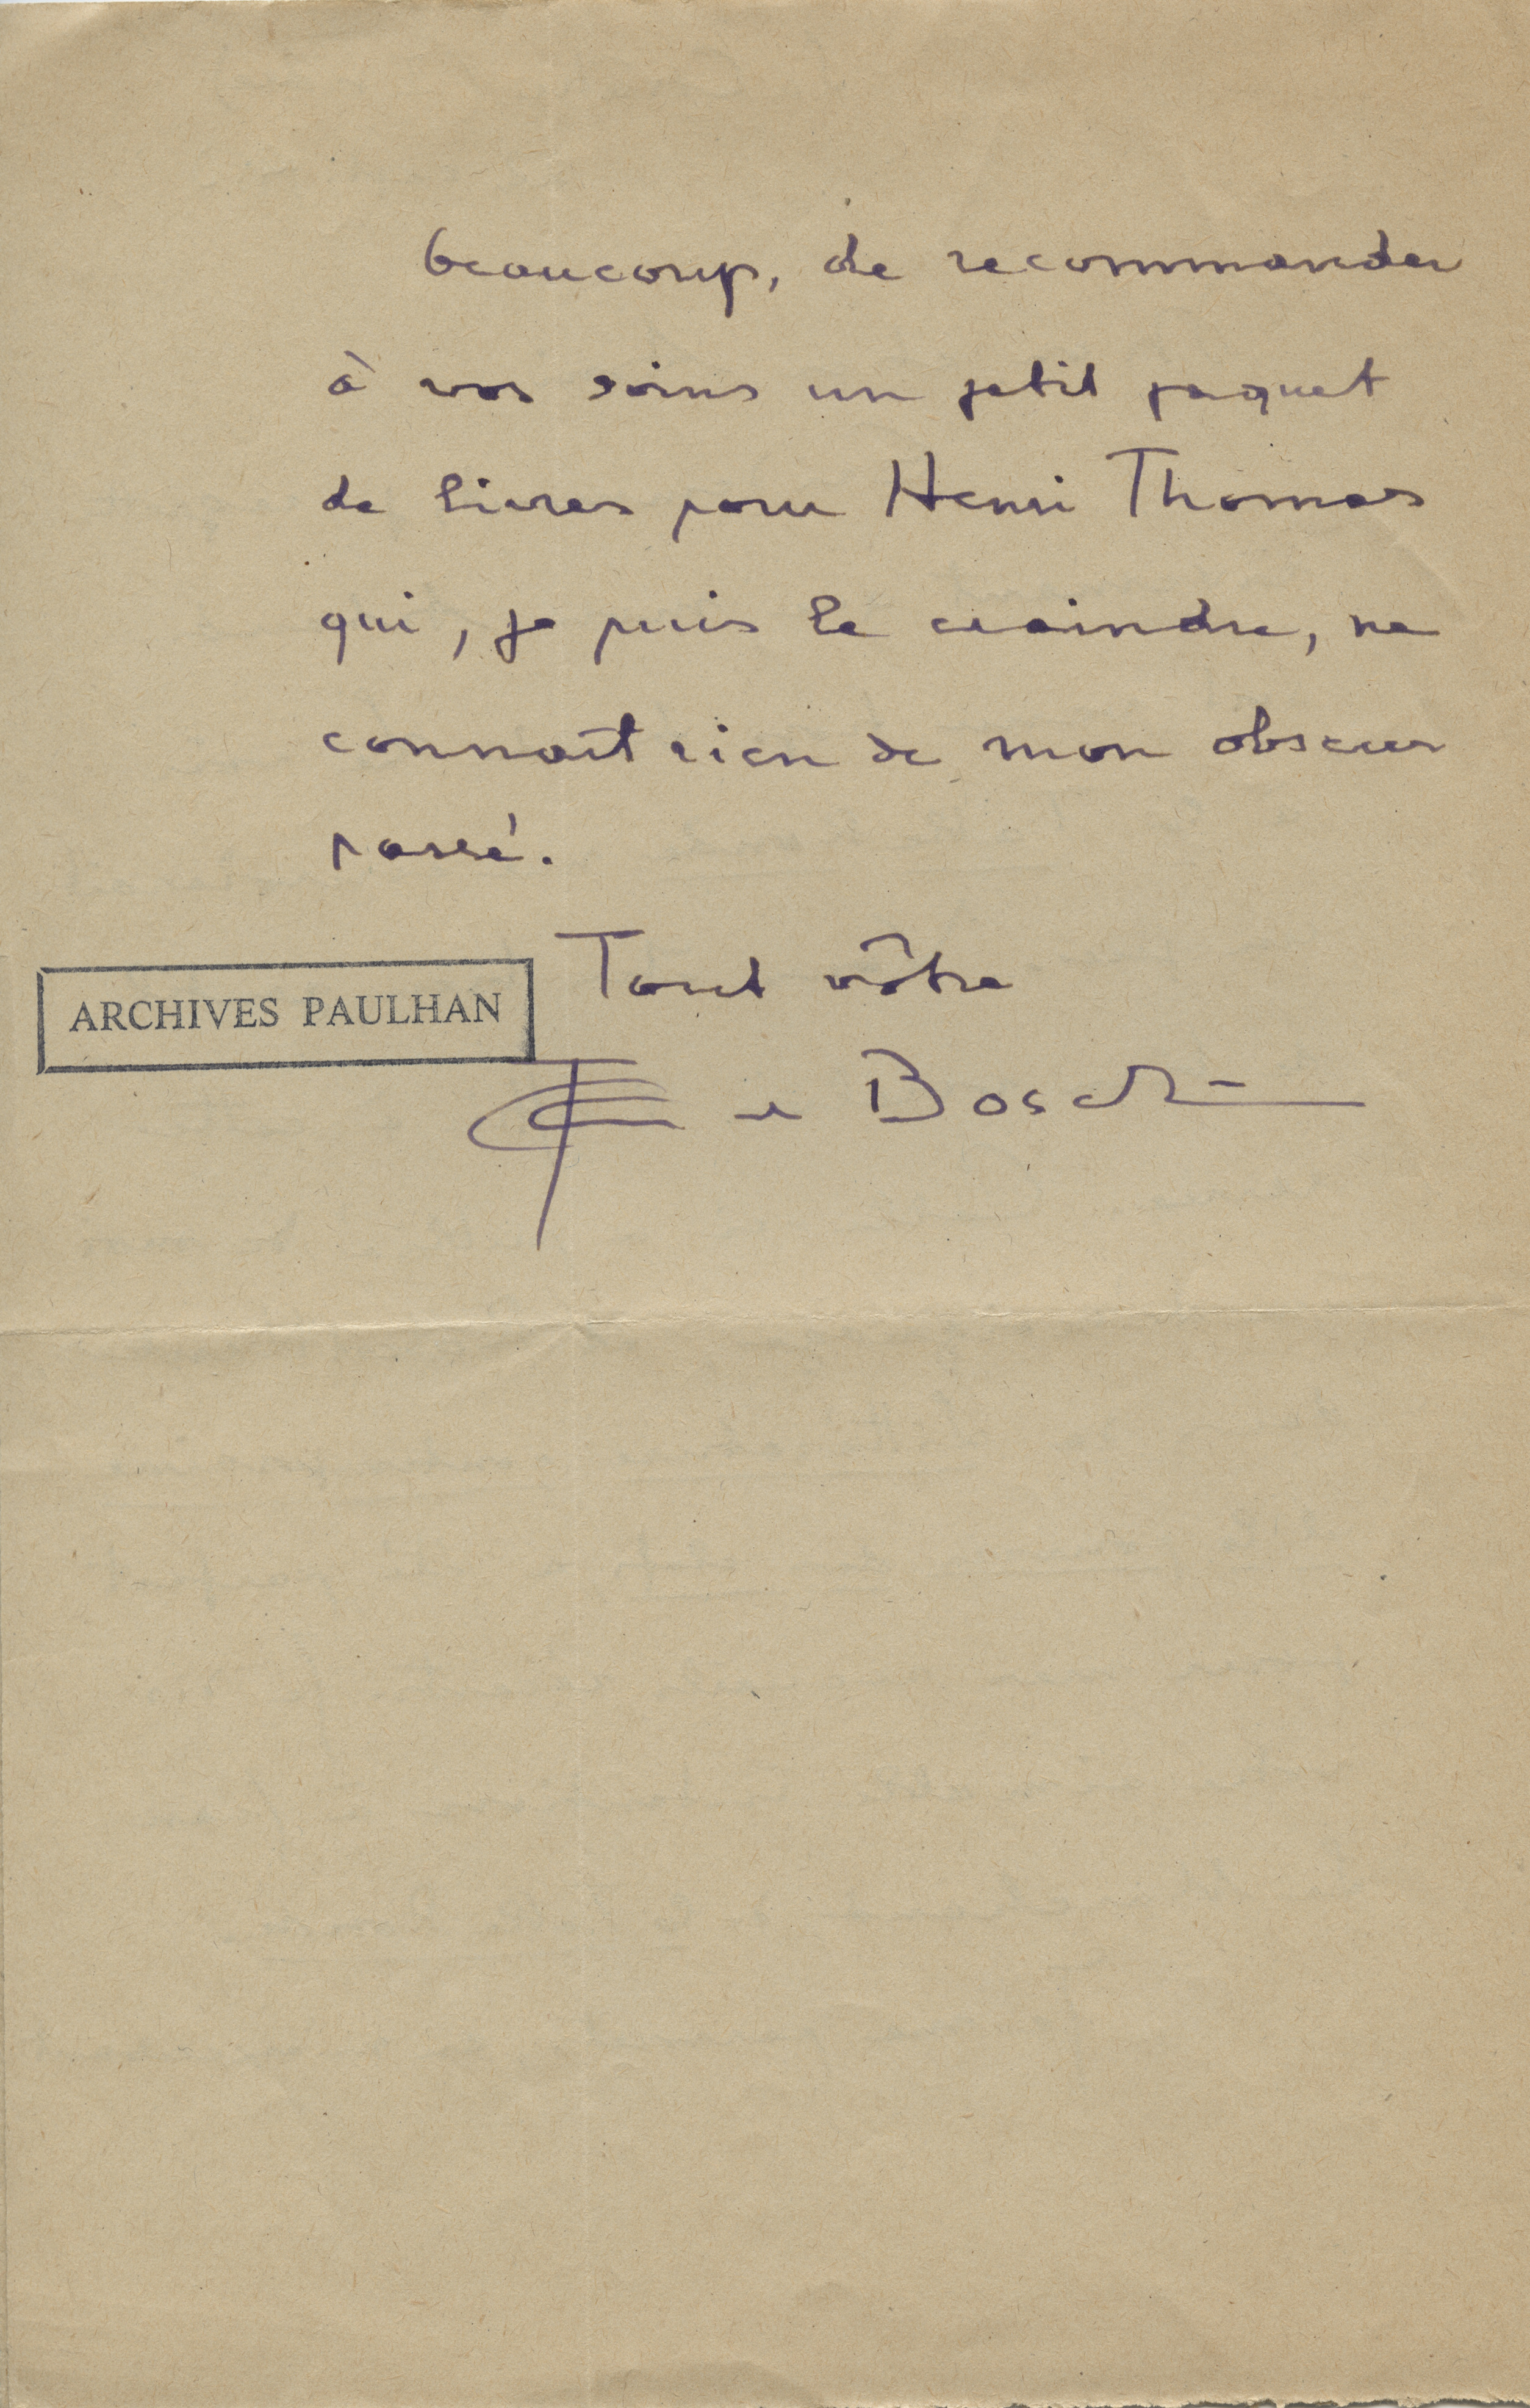 beaucoup, de recommander
à vos soins un petit paquet
de livres pour Henri Thomas
qui, je puis le craindre, ne
connaît rien de mon obscur
passé.
Tout vôtre
ARCHIVES PAULHAN
Bosch